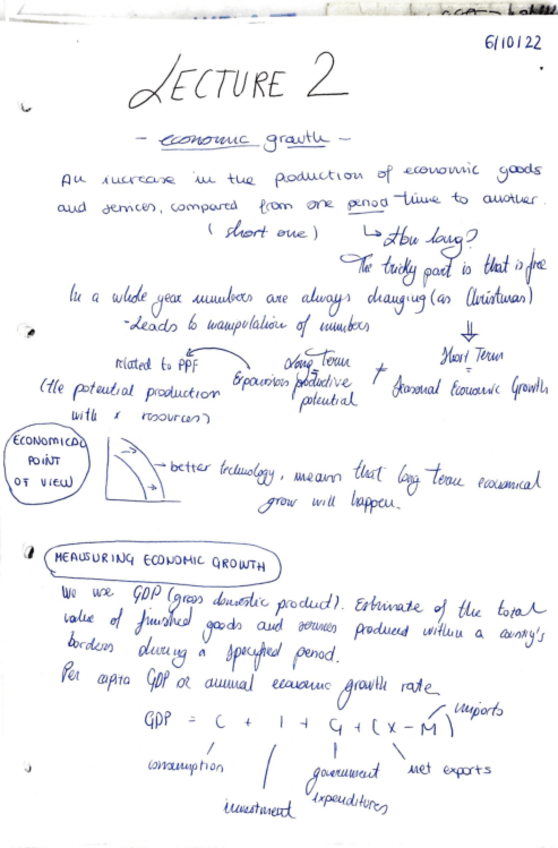 6/10/22
LECTURE 2
- economic growth -
An increase in the production of economic goods
and services, compared from one period time to another.
(short one) ↳ How long?
The tricky part is that is free
In a whole year numbers are always changing (as Christmas)
- Leads to manipulation of numbers
related to PPF
(the potential production
with x resources)
Long Term
=
Expansion productive
potential
+
Short Term
=
Seasonal Economic Growth
ECONOMICAL
POINT
OF VIEW
better technology, means that long term economical
grow will happen.
MEAUSURING ECONOMIC GROWTH
We use GDP (gross domestic product). Estimate of the total
value of finished goods and services produced within a country's
borders during a specified period.
Per capita GDP or annual economic growth rate
imports
GDP = C + I + G + (X - M)
consumption
investment
government
expenditures
net exports